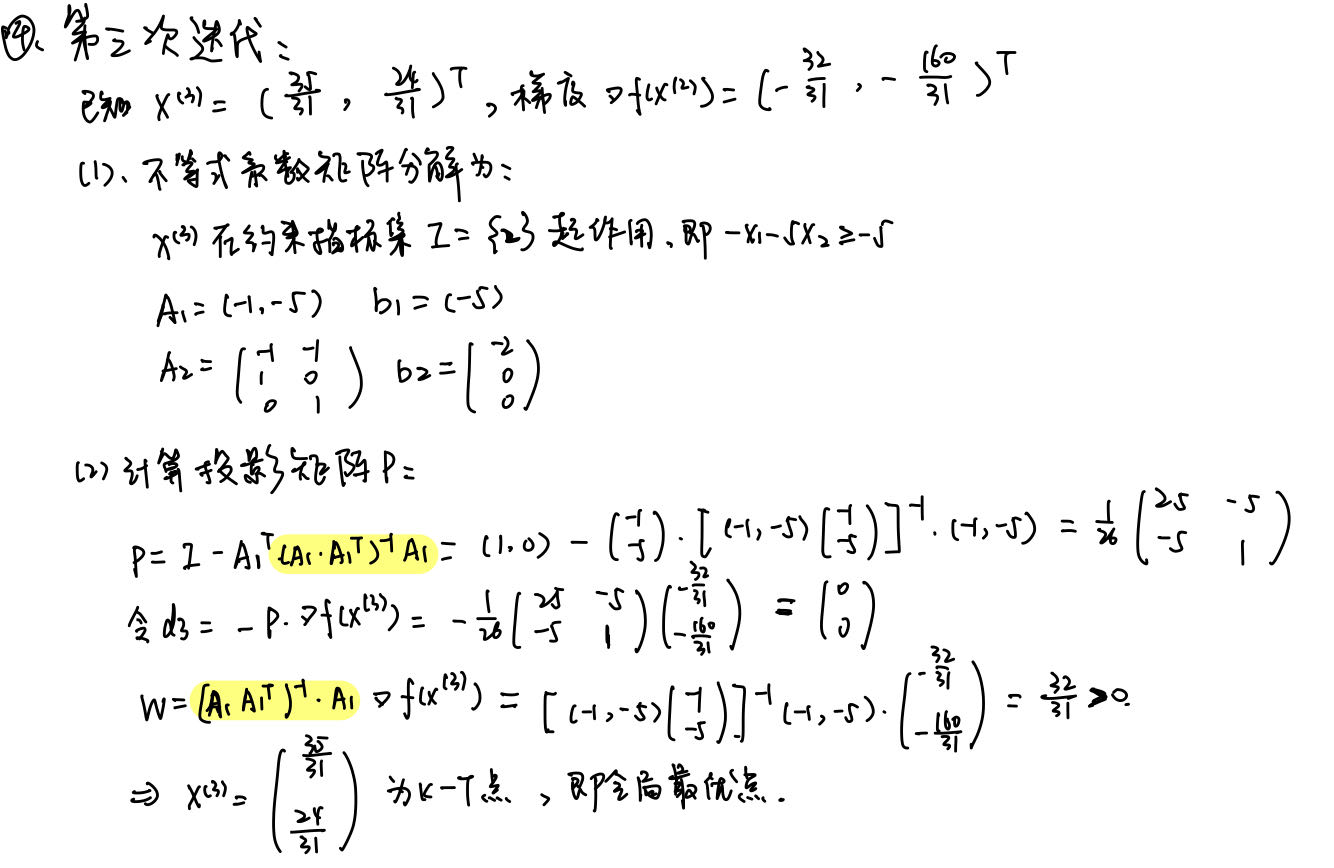 四、第三次迭代：
已知 x⁽³⁾ = (35/31, 24/31)ᵀ, 梯度 ∇f(x⁽²⁾) = (-32/31, -160/31)ᵀ
(1)、不等式系数矩阵分解为：
x⁽³⁾ 在约束指标集 I = {2} 起作用, 即 -x₁-5x₂ ≥ -5
A₁ = (-1, -5) b₁ = (-5)
A₂ = (-1 -1; 1 0; 0 1) b₂ = (-2; 0; 0)
(2) 计算投影矩阵 P：
P = I - A₁ᵀ(A₁·A₁ᵀ)⁻¹A₁ = (1, 0) - (-1; -5)·[(-1, -5)(-1; -5)]⁻¹·(-1, -5) = 1/26 (25 -5; -5 1)
令 d₃ = -P·∇f(x⁽³⁾) = -1/26 (25 -5; -5 1)(-32/31; -160/31) = (0; 0)
W = (A₁A₁ᵀ)⁻¹·A₁∇f(x⁽³⁾) = [(-1, -5)(-1; -5)]⁻¹(-1, -5)·(-32/31; -160/31) = 32/31 > 0.
⇒ x⁽³⁾ = (35/31; 24/31) 为K-T点, 即全局最优点.